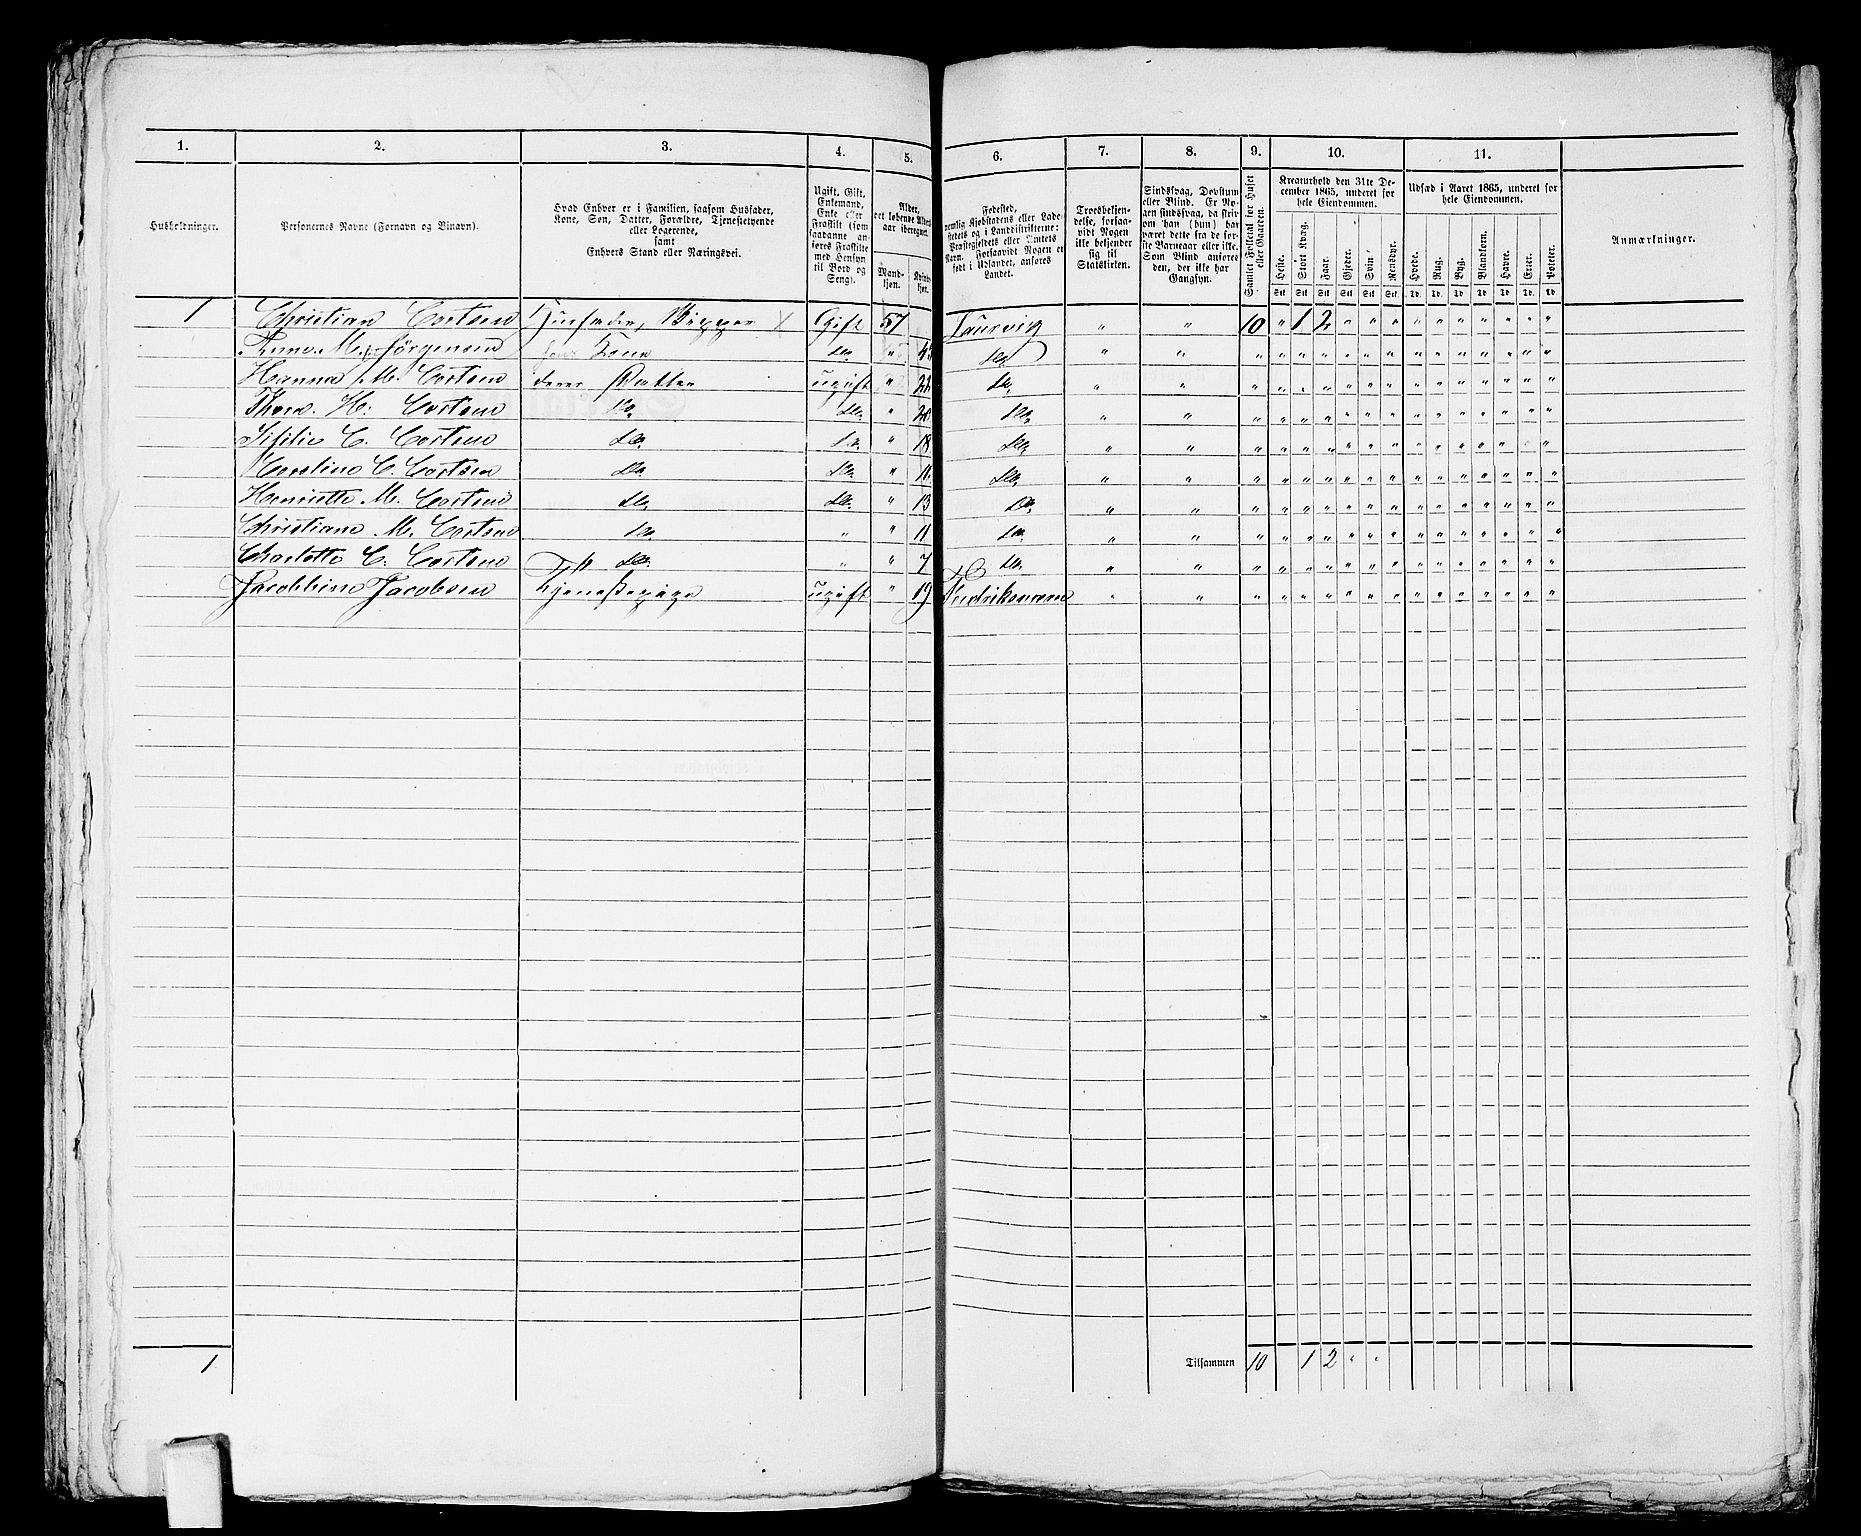 1. 2. 3. 4. 5. 6. 7. 8. 9. 10. 11.
Husholdninger.
Personernes Navne (Fornavn og Binavn).
Hvad Enhver er i Familien, saasom Husfader,
Kone, Søn, Datter, Forældre, Tjenestetyende
eller Logerende,
samt
Enhvers Stand eller Næringsvei.
Ugift, Gift,
Enkemand,
Enke eller
Fraskilt (som
saadanne anføres Fraskilte
med Hensyn
til Bord og
Seng).
Alder,
det løbende Alders-
aar iberegnet.
Mand-
kjøn.
Kvinde-
kjøn.
Fødested,
nemlig Kjøbstadens eller Lade-
stedets og i Landdistrikterne:
Præstegjeldets eller Amtets
Navn. Forsaavidt Nogen er
født i Udlandet, anføres
Landet.
Troesbekjen-
delse, forsaa-
vidt Nogen
ikke bekjender
sig til
Statskirken.
Sindssvag, Døvstum
eller Blind. Er No-
gen sindssvag, da skriv
om han (hun) har
været dette fra de før-
ste Barneaar eller ikke.
Som Blind anføres
den, der ikke har
Gangsyn.
Samlet Folketal for Huset
eller Gaarden.
Kreaturhold den 31te De-
cember 1865, underet for
hele Eiendommen.
Heste. Stort Kvæg. Faar. Gjeder. Svin. Rensdyr.
Stk Stk Stk Stk Stk Stk
Udsæd i Aaret 1865, underet for
hele Eiendommen.
Hvede. Rug. Byg. Blandkorn. Havre. Erter. Poteter.
Td. Td. Td. Td. Td. Td. Td.
Anmærkninger.
1 Christian Cortsen Husfader, Skipper X Gift 57 Laurvig " " 10 " 1 2 " " " " " " " " " "
Anne M. Jørgensen hans Kone do " do " "
Hanna M. Cortsen deres Datter ugift " 22 do " "
Thora H. Cortsen do do " 20 do " "
Sifilie C. Cortsen do do " 18 do " "
Caroline C. Cortsen do do " do " "
Henriette M. Cortsen do do " 13 do " "
Christiane M. Cortsen do " " 11 do " "
Charlotte C. Cortsen do " " 7 do " "
Jacobbine Jacobsen Tjenestepige ugift " 19 Fredriksværn " "
1 Tilsammen 10 1 2 " "